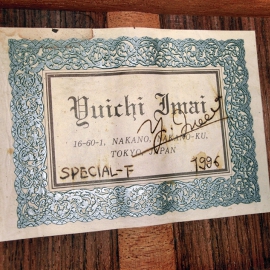 Yuichi Imai
16-60-1, NAKANO, NAKANO-KU,
TOKYO, JAPAN
SPECIAL-F 1986